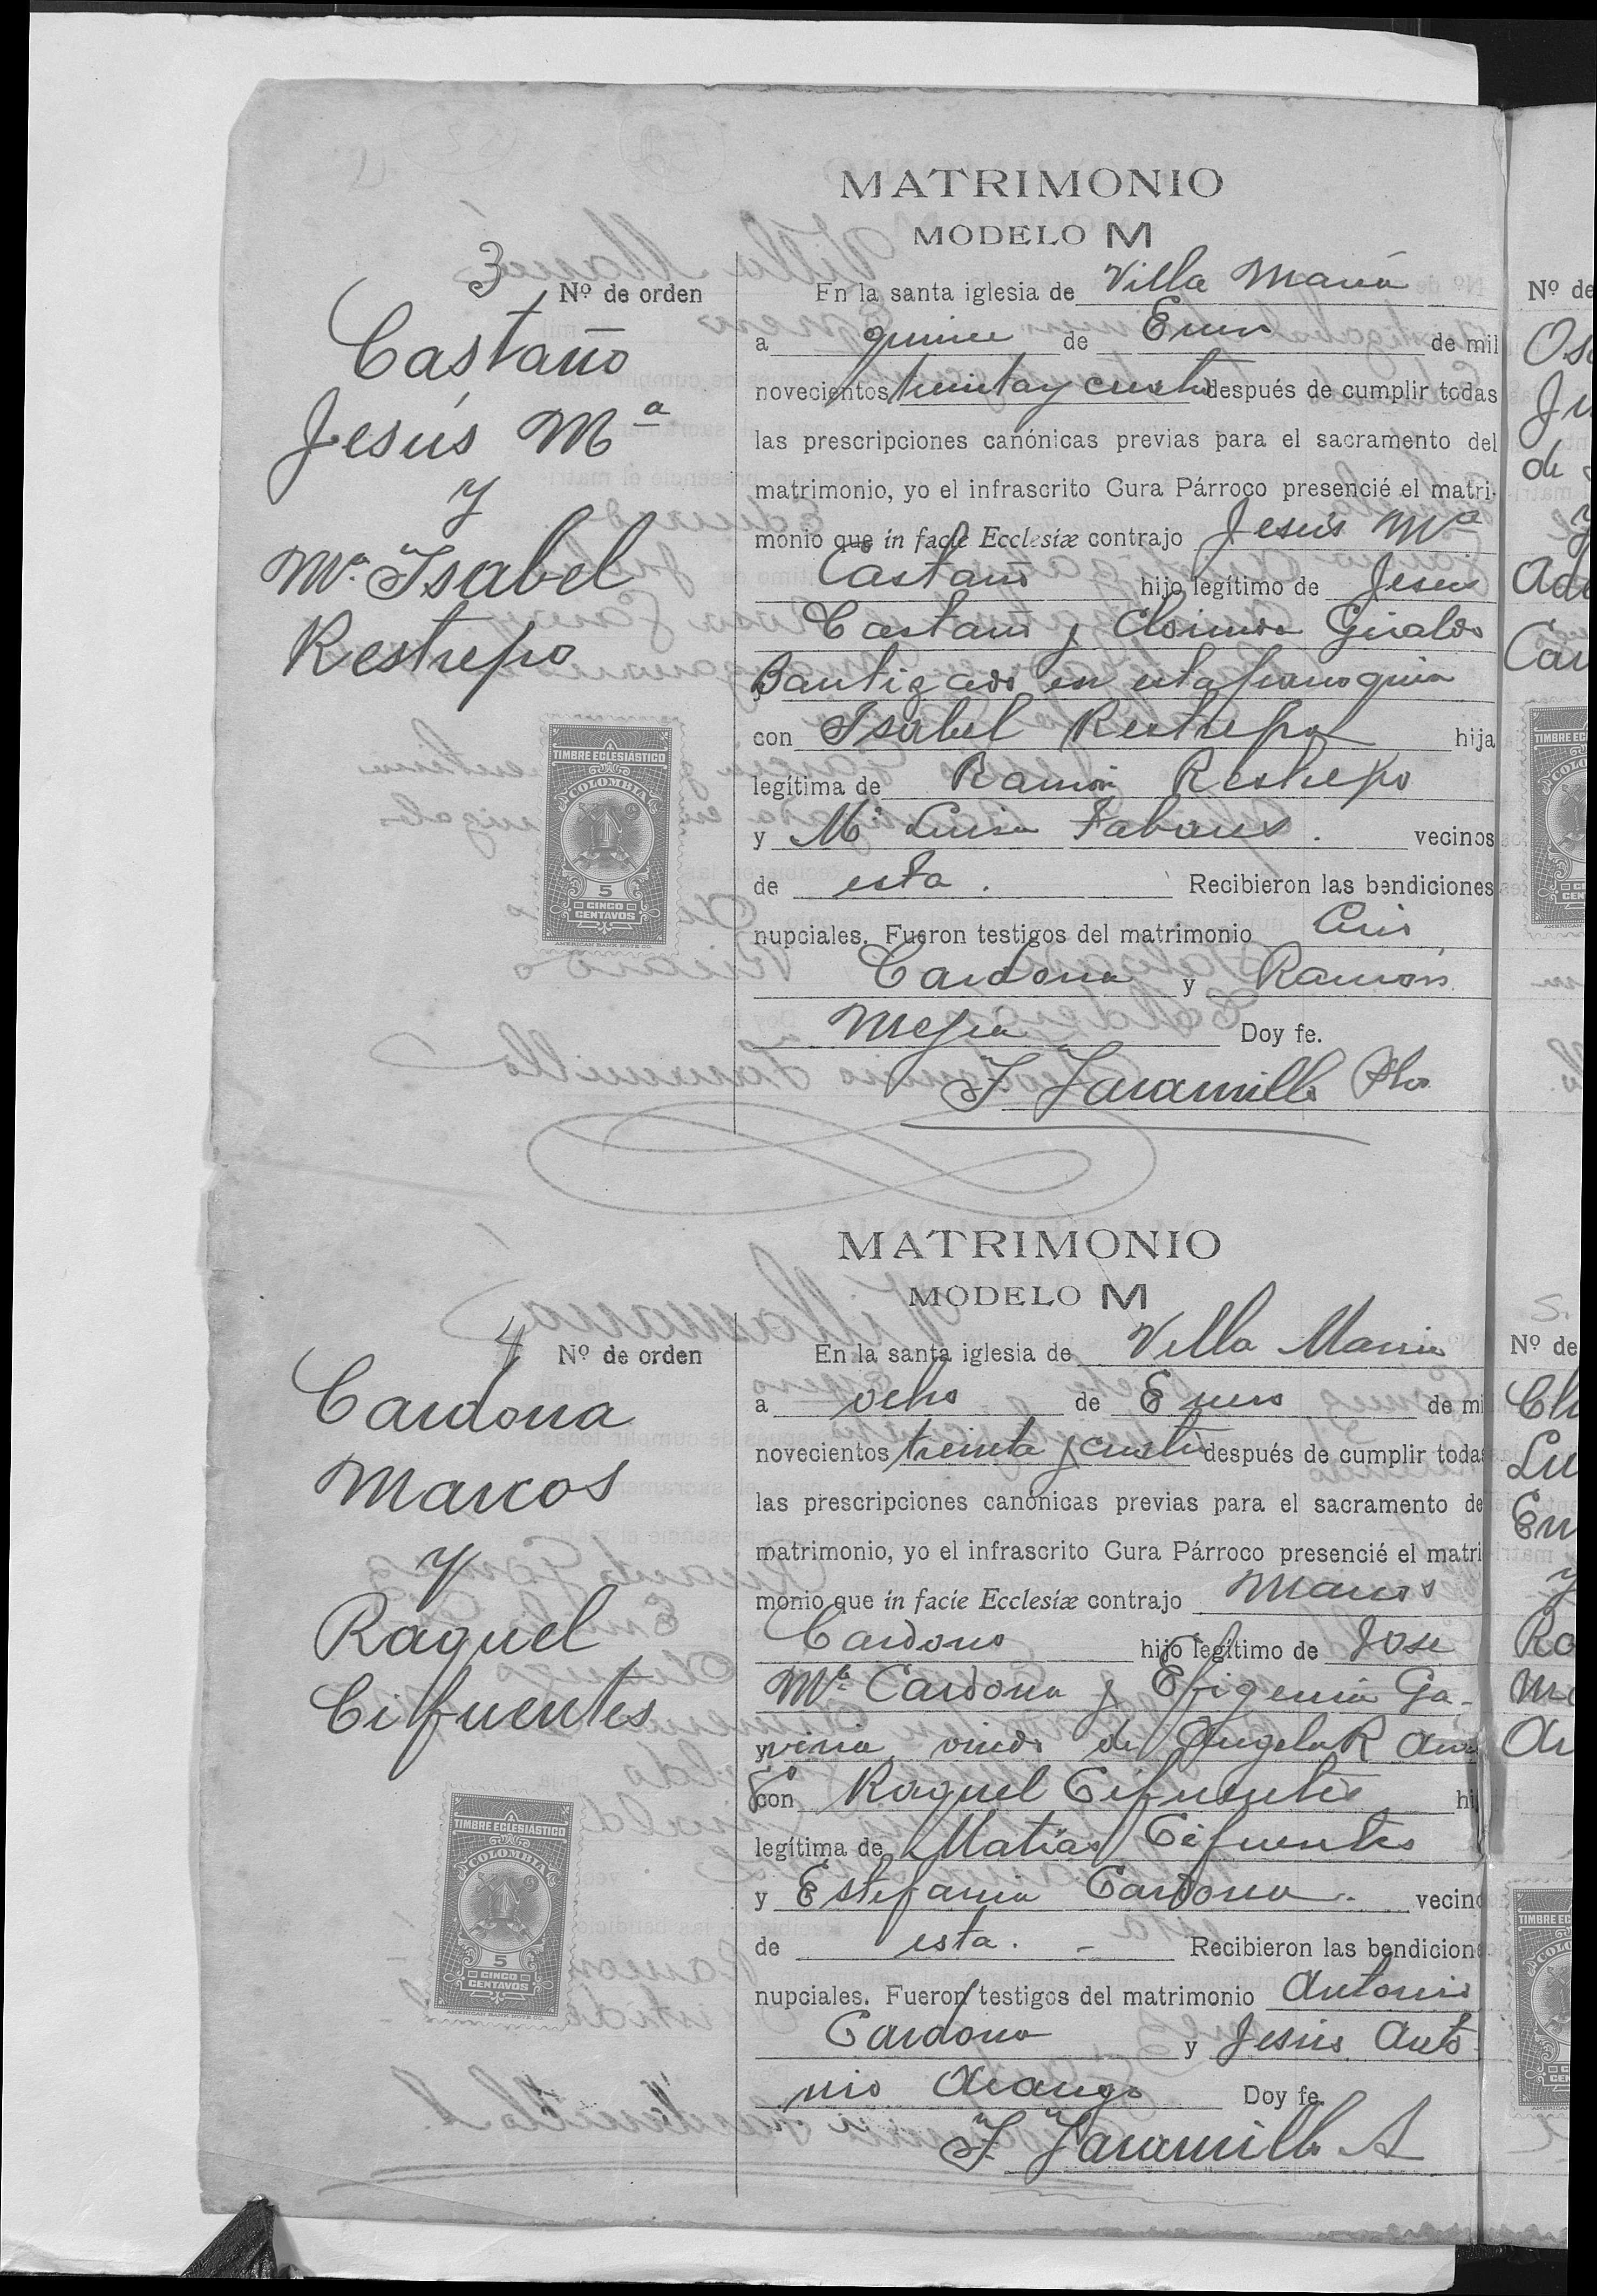 MATRIMONIO
MODELO M
3
Nº de orden
Castaño
Jesús Mª
y
Mª Isabel
Restrepo
TIMBRE ECLESIÁSTICO
COLOMBIA
5
CINCO
CENTAVOS
AMERICAN BANK NOTE CO.
En la santa iglesia de Villa María
a quince de Enero de mil
novecientos treinta y cuatro después de cumplir todas
las prescripciones canónicas previas para el sacramento del
matrimonio, yo el infrascrito Cura Párroco presencié el matri-
monio que in facie Ecclesiæ contrajo Jesús Mª
Castaño hijo legítimo de Jesus
Castaño y Clorinda Giraldo
y Bautizado en esta parroquia
con Isabel Restrepo hija
legítima de Ramón Restrepo
y Mª Luisa Tabares. vecinos
de esta. Recibieron las bendiciones
nupciales. Fueron testigos del matrimonio Luis
Cardona y Ramón
Mejia Doy fe.
J Jaramillo Pbro
MATRIMONIO
MODELO M
4
Nº de orden
Cardona
Marcos
y
Raquel
Cifuentes
TIMBRE ECLESIÁSTICO
COLOMBIA
5
CINCO
CENTAVOS
AMERICAN BANK NOTE CO.
En la santa iglesia de Villa Maria
a ocho de Enero de mi
novecientos treinta y cuatro después de cumplir todas
las prescripciones canónicas previas para el sacramento de
matrimonio, yo el infrascrito Cura Párroco presencié el matri
monio que in facie Ecclesiæ contrajo Marcos
Cardona hijo legítimo de Jose
Mª Cardona y Efigenia Ga-
y viria viudo de Angela R
con Raquel Cifuentes hi
legítima de Matías Cifuentes
y Estefania Cardona. vecino
de esta. - Recibieron las bendicione
nupciales. Fueron testigos del matrimonio Antonio
Cardona y Jesús Anto
nio Arango Doy fe.
J. Jaramillo A
Nº de
Nº de